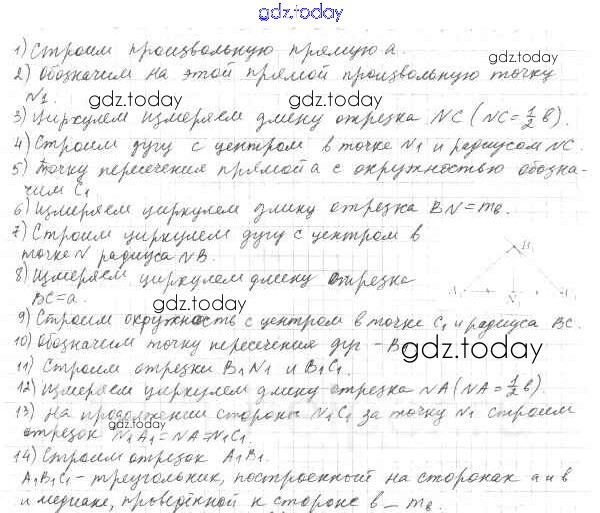 gdz.today
1) Строим произвольную прямую a.
2) Обозначим на этой прямой произвольную точку
N1.
gdz.today
gdz.today
3) Циркулем измеряем длину отрезка NC (NC = 1/2 b).
4) Строим дугу с центром в точке N1 и радиусом NC.
5) Точку пересечения прямой a с окружностью обозна-
чим C1.
6) Измеряем циркулем длину отрезка BN = mв.
7) Строим циркулем дугу с центром в
точке N радиуса NB.
8) Измеряем циркулем длину отрезка
BC = a.
gdz.today
9) Строим окружность с центром в точке C1 и радиуса BC.
10) Обозначим точку пересечения дуг – B
gdz.today
11) Строим отрезки B1N1 и B1C1.
12) Измеряем циркулем длину отрезка NA (NA = 1/2 b).
13) На продолжении стороны N1C1 за точку N1 строим
отрезок N1A1 = NA = N1C1.
gdz.today
14) Строим отрезок A1B1.
A1B1C1 – треугольник, построенный на сторонах a и b
и медиане, проведённой к стороне b – mв.
gdz.today